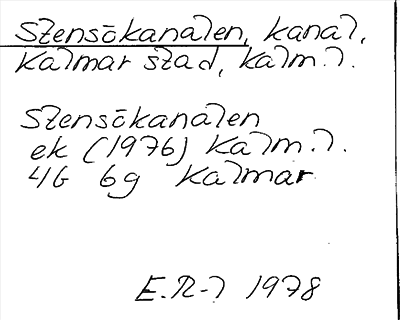 Stensökanalen, kanal,
Kalmar stad, Kalm. l.
Stensökanalen
ek (1976) Kalm. l.
4G 6g Kalmar
E.R-l 1978